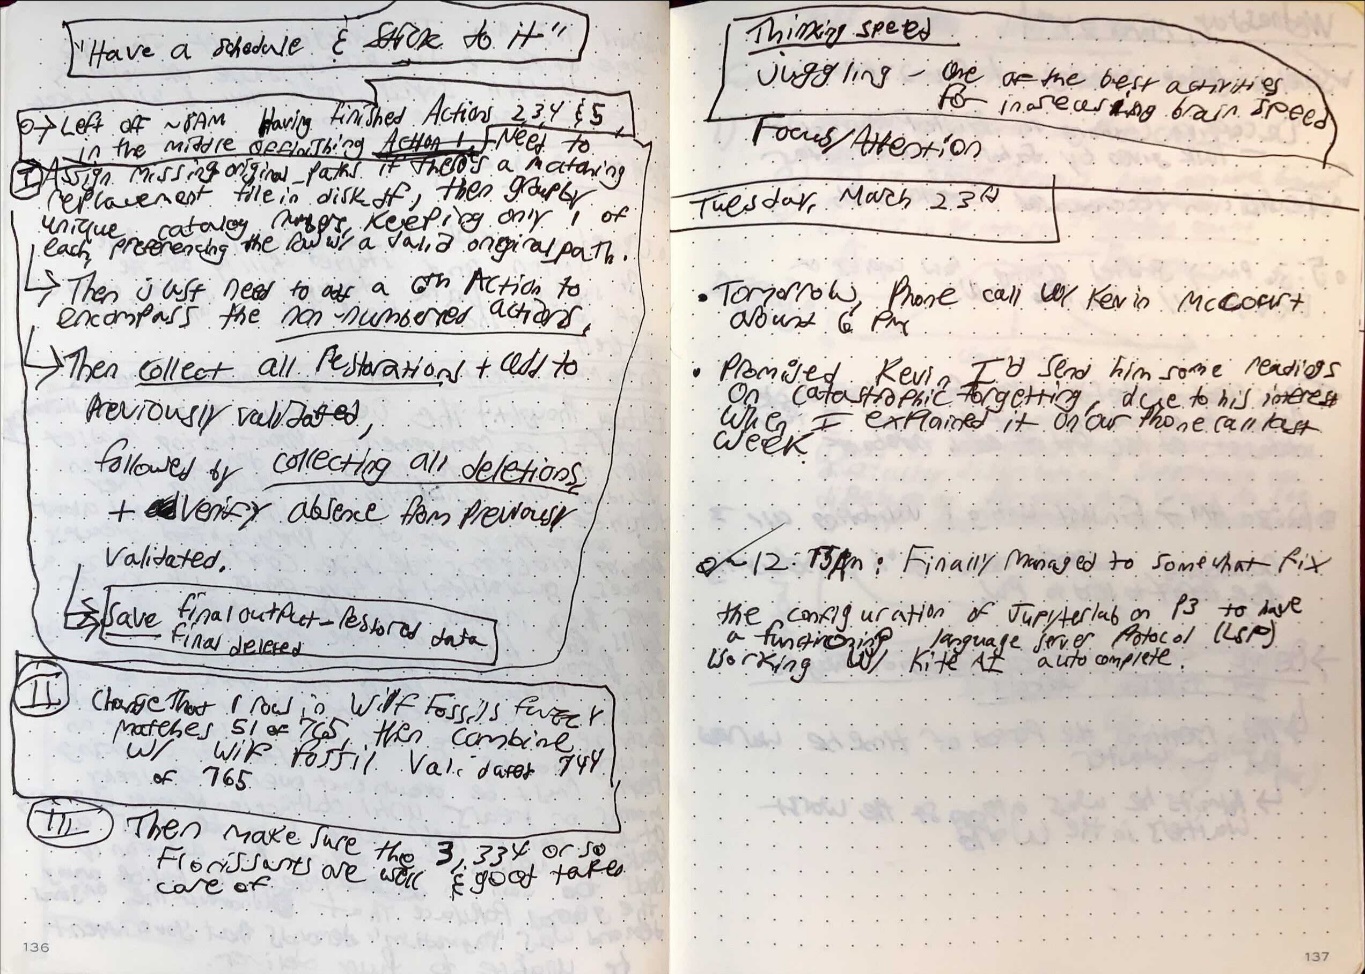 "Have a schedule & stick to it"
o→ Left off ~8AM Having finished Actions 2 3 4 & 5
in the middle of finithing Action 1. Need to
I Assign missing original_paths if there's a matching
replacement file in disk df, then groupby
unique catalog numbers, keeping only 1 of
each, preferencing the row w/ a valid original path.
↳ Then just need to add a 6th Action to
encompass the non-numbered actions.
↳ Then collect all restorations + add to
previously validated,
followed by collecting all deletions
+ verify absence from previously
validated.
↳ Save final output - restored data
final deleted
II Change that 1 row in Wilf Fossils fuzzy
matches 51 of 765, then combine
w/ Wilf Fossil Validated 744
of 765
III Then make sure the 3,334 or so
Florissants are well & good taken
care of
136
Thinking speed
Juggling - One of the best activities
for increasing brain speed
Focus/Attention
Tuesday, March 23rd
• Tomorrow, Phone call w/ Kevin McCourt
about 6 PM
• Promised Kevin I'd send him some readings
on catastrophic forgetting, due to his interest
when I explained it on our phone call last
week.
~12: Finally managed to somewhat fix
the configuration of Jupyterlab on P3 to have
a functioning language server Protocol (LSP)
working w/ Kite AI autocomplete.
137